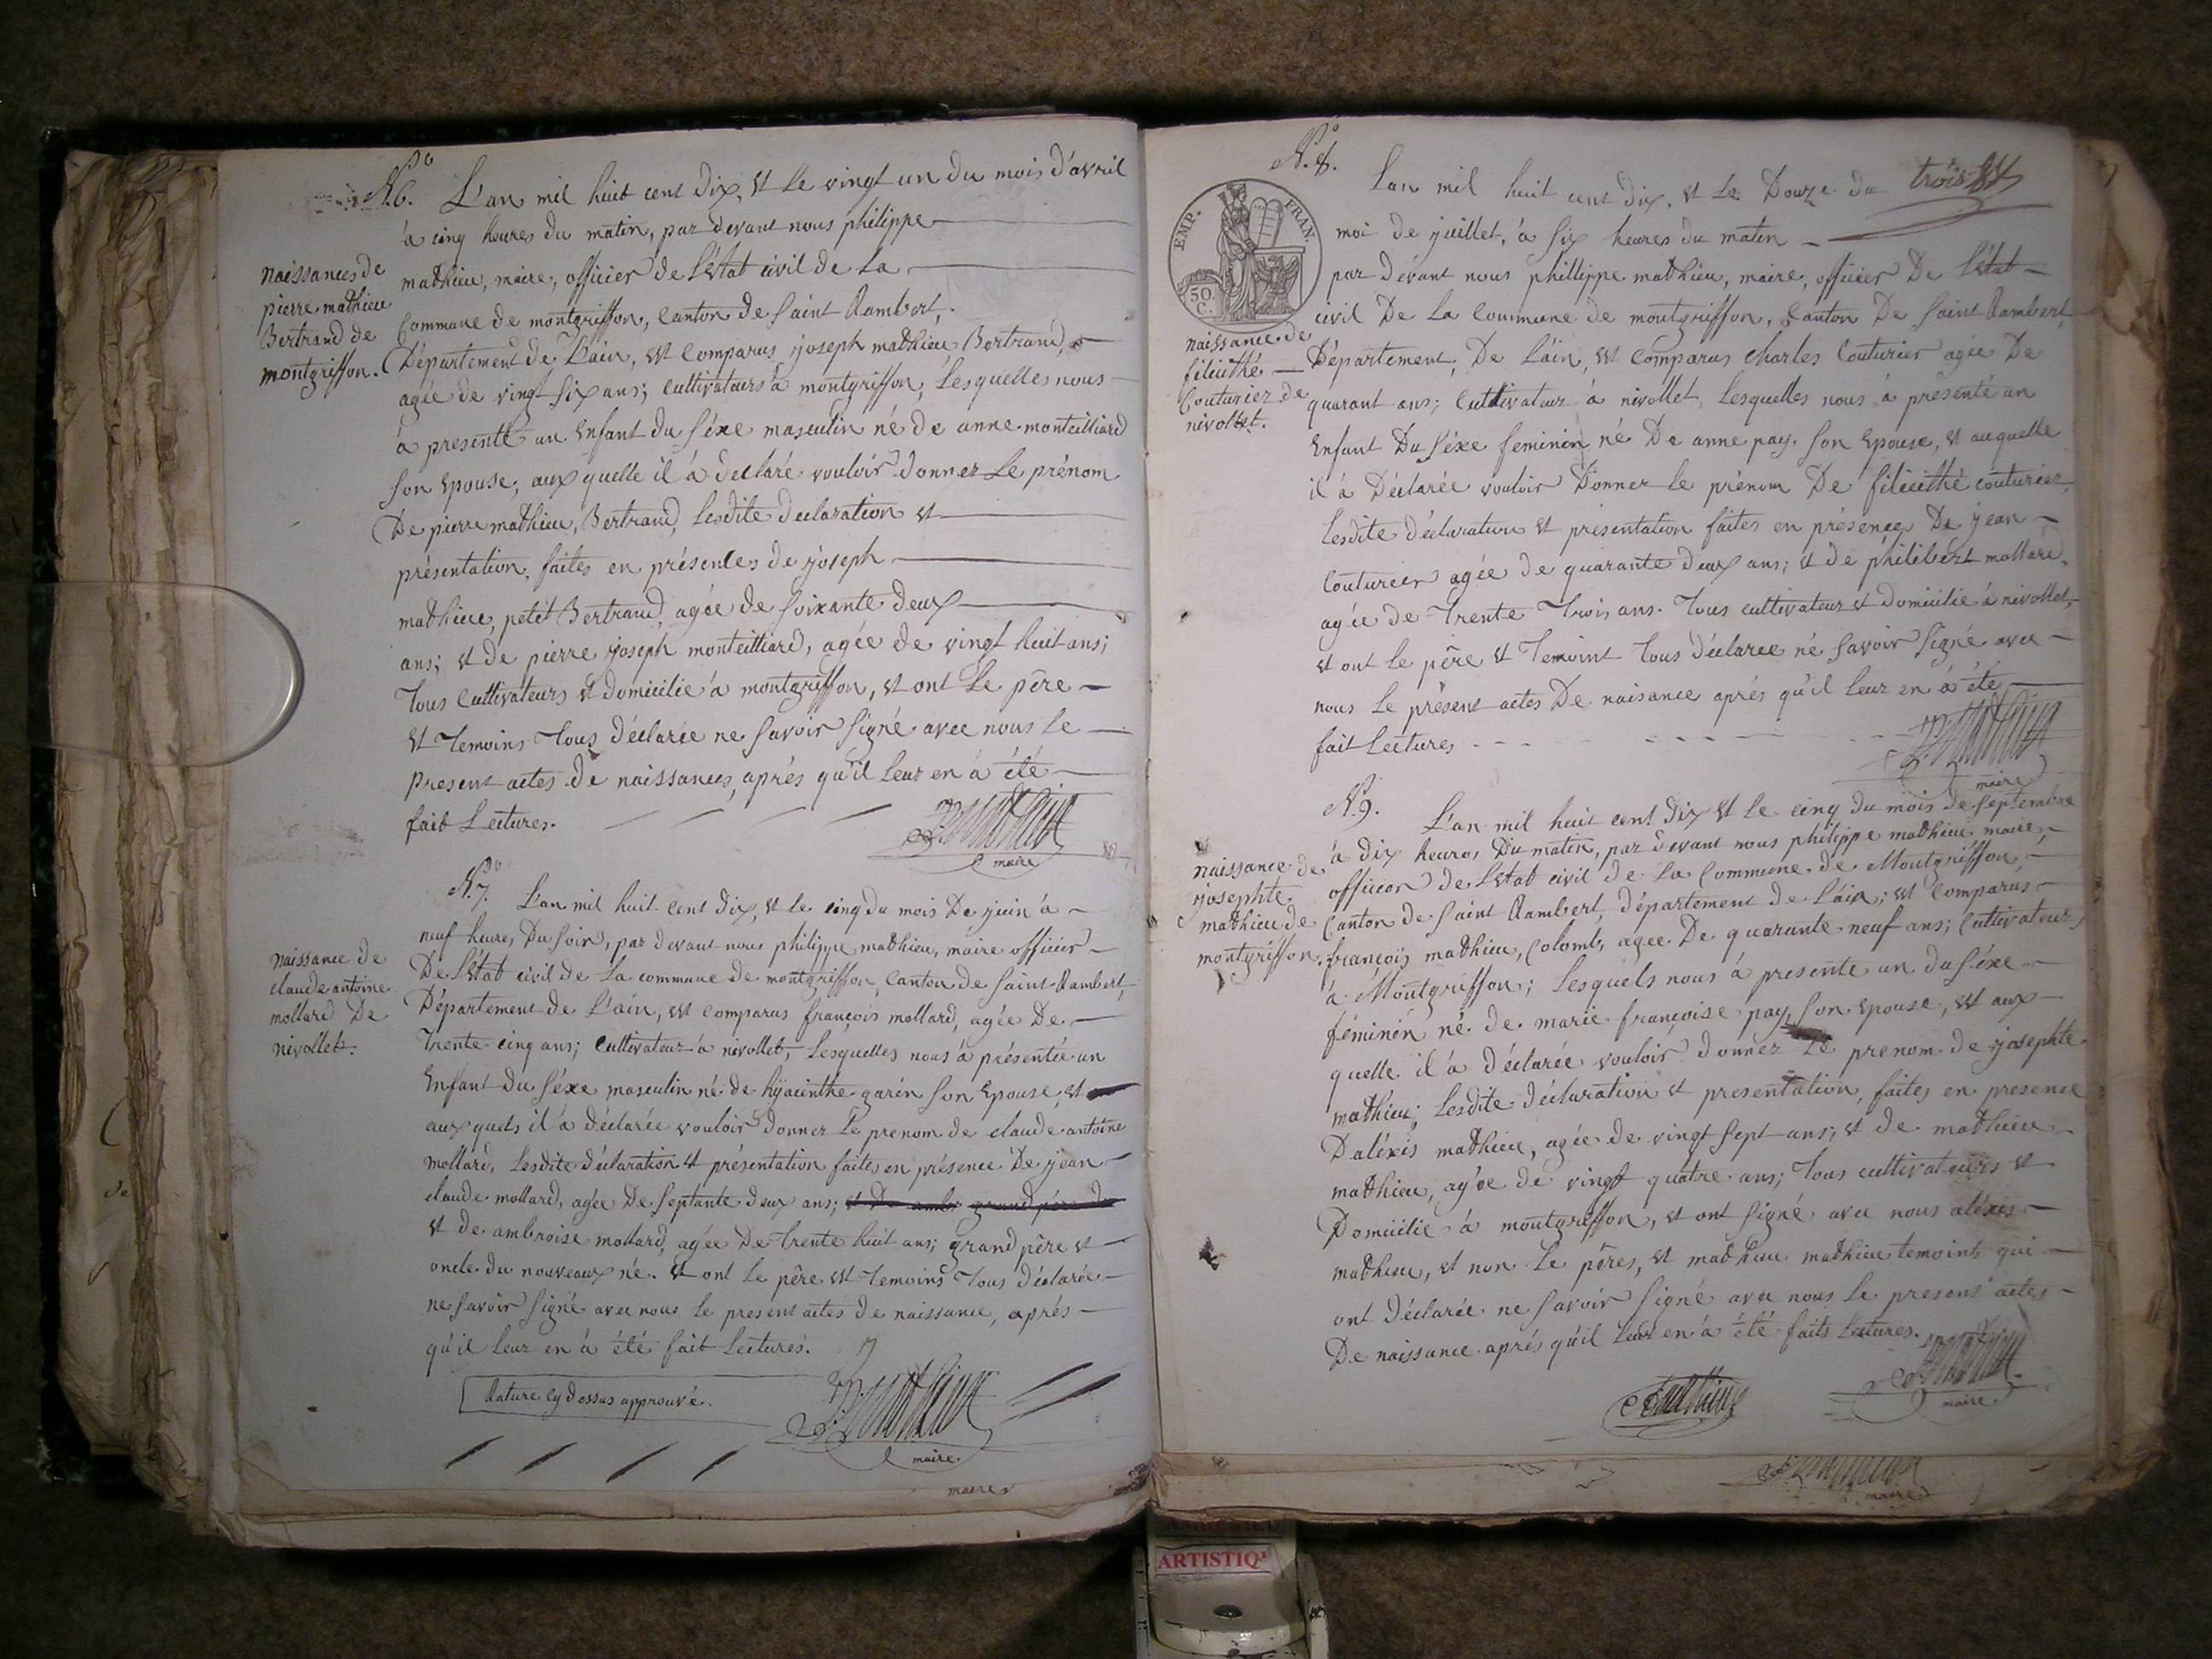 N.º 6. L'an mil huit cent dix, et le vingt un du mois d'avril
à cinq heures du matin, par devant nous philippe
mathieu, maire, officier de L'Etat civil de La
Commune de montgriffon, Canton de Saint Rambert,
Département de L'ain, est Comparus joseph mathieu Bertrand,
agée de vingt six ans; cultivateurs à montgriffon, Lesquelles nous
à presenté un Enfant du Séxe masculin né de anne monteilliard
Son Epouse, aux quelle il à déclaré vouloir donner Le prénom
De pierre mathieu, Bertrand, Lesdite declaration et
présentation, faites en présences de joseph
mathieu, petit Bertrand, agée de Soixante deux
ans; et de pierre joseph monteilliard, agée de vingt huit ans;
Tous Cultivateurs et domicilie à montgriffon, et ont Le père
et Temoins tous déclarée ne Savoir Signé avec nous le
present actes de naissances, aprés qu'il Leur en à été
fait Lectures.
maire
naissances de
pierre mathieu
Bertrand de
montgriffon.
N.º 7. L'an mil huit cent dix, et le cinq du mois De juin à
neuf heures Du Soir, par devant nous philippe mathieu, maire officier
De L'Etat civil de La commune de montgriffon, Canton de Saint Rambert,
Département de L'ain, est comparus françois mollard, agée De
Trente cinq ans; Cultivateur à nivollet, Lesquelles nous à présentée un
Enfant du Séxe masculin né de hÿacinthe garin Son Epouse, et
aux quels il à déclarée vouloir donner Le prenom de claude antoine
mollard, Lesdite déclaration et présentation faites en présence De jean
claude mollard, agée De Septante deux ans; et De amb. grand père du
et de ambroise mollard, agée De Trente huit ans; grand père et
oncle du nouveaux né. Et ont Le père et Temoins Tous déclarée
ne Savoir Signé avec nous le present actes de naissance, aprés
qu'il Leur en à été fait Lectures.
Rature cy dessus approuvé.
maire.
naissance de
claude antoine
mollard De
nivollet.
maire
N.º 8. L'an mil huit cent dix, et Le Douze du
trois
moi de juillet, à Six heures du matin
par dévant nous phillippe mathieu, maire, officier De L'état
civil De La Commune de montgriffon, Canton De Saint Rambert,
Département, De L'ain, est Comparus charles Couturier agée De
quarant ans; Cultivateur à nivollet, Lesquelles nous à présenté un
Enfant Du Séxe feminin né De anne pay, Son Epouse, et auquelle
il à Déclarée vouloir Donner Le prénom De féliécithé couturier,
Lesdite déclaration et présentation faites en présence De jean
Couturier agée de quarante deux ans; et de philibert mollard,
agée de Trente Trois ans. Tous cultivateur et domicilie à nivollet,
et ont Le père et Temoint Tous déclaree né Savoir Signé avec
nous Le présent actes De naisance aprés qu'il Leur en à été
fait Lectures
maire
EMP. FRAN.
50.
C.
naissance de
féliécithé
Couturier de
nivollet.
N.º 9. L'an mil huit cent dix et le cinq du mois de Septembre
à dix heures Du matin, par devant nous philippe mathieu maire,
officier de L'etat civil de La Commune de Montgriffon
Canton de Saint Rambert, département de L'ain; est Comparus
françois mathieu, Colomb, agee De quarante neuf ans; Cultivateur
à Montgriffon; Lesquels nous à presente un du Séxe
féminin né de marie françoise pay, Son Epouse, est aux
quelle il à déclarée vouloir donner Le prenom de josephte
mathieu; Lesdite déclaration et presentation, faites en presence
D'aléxis mathieu, agée de vingt Sept ans; et de mathieu
mathieu, agée de vingt quatre ans; Tous cultivateurs et
Domicilie à montgriffon, et ont Signé avec nous aléxis
mathieu, et non Le péres, et mathieu mathieu temoints qui
ont déclarée ne Savoir Signé avec nous Le present actes
De naissance aprés qu'il Leur en à été faits Lectures.
maire.
naissance de
josephte
mathieu de
montgriffon.
maire
ARTISTIQ